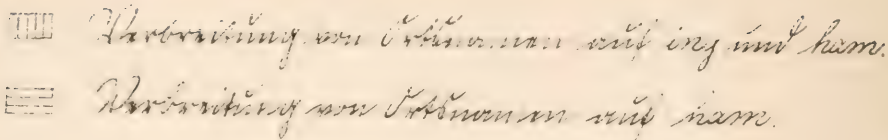 Verbreitung von Ortsnamen auf ing und ham.
Verbreitung von Ortsnamen auf ham.